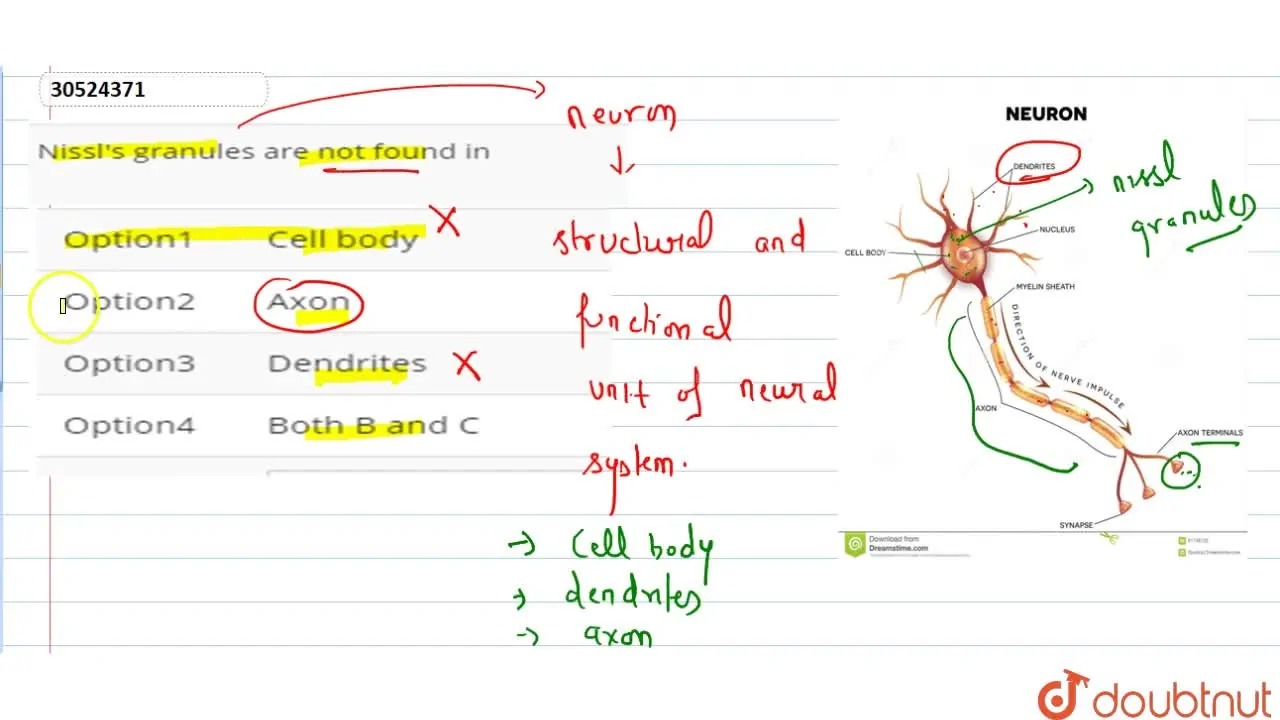 30524371
Nissl's granules are not found in
Option1 Cell body X
Option2 Axon
Option3 Dendrites X
Option4 Both B and C
neuron
structural and
functional
unit of neural
system.
→ Cell body
→ dendrites
→ axon
NEURON
DENDRITES
nissl
granules
NUCLEUS
CELL BODY
MYELIN SHEATH
DIRECTION OF NERVE IMPULSE
AXON
AXON TERMINALS
SYNAPSE
Download from
Dreamstime.com
doubtnut